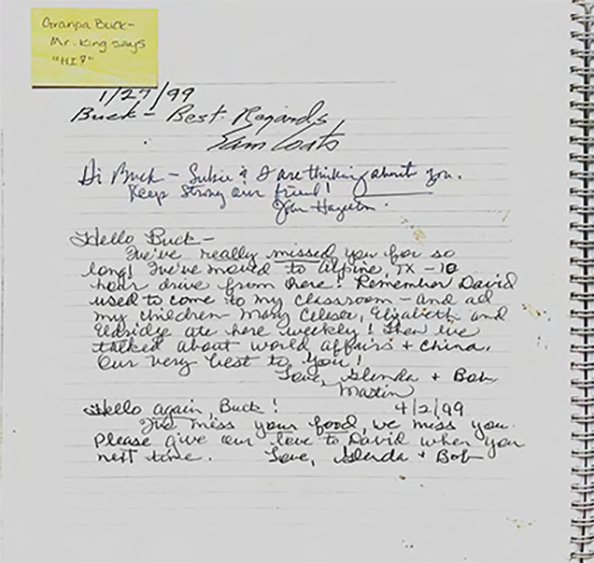 Granpa Buck-
Mr. King says
"HI?"
1/27/99
Buck - Best Regards
Sam Coats
Hi Buck - Sukie & I are thinking about you.
Keep Strong our friend!
John
Hello Buck -
We've really missed you for so
long! We've moved to Alpine, TX - 10
hour drive from here! Remember David
used to come to my classroom - and
my children Mary Celeste, Elizabeth and
Eldridge ate here weekly! Then we
talked about world affairs + China.
Our very best to you!
Love, Glenda + Bob
Martin
Hello again, Buck! 4/2/99
We miss your food, we miss you.
Please give our love to David when you
next time. Love, Glenda + Bob